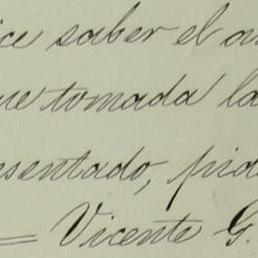 ice saber el a
ue tomada la
esentado, pide
= Vicente G.